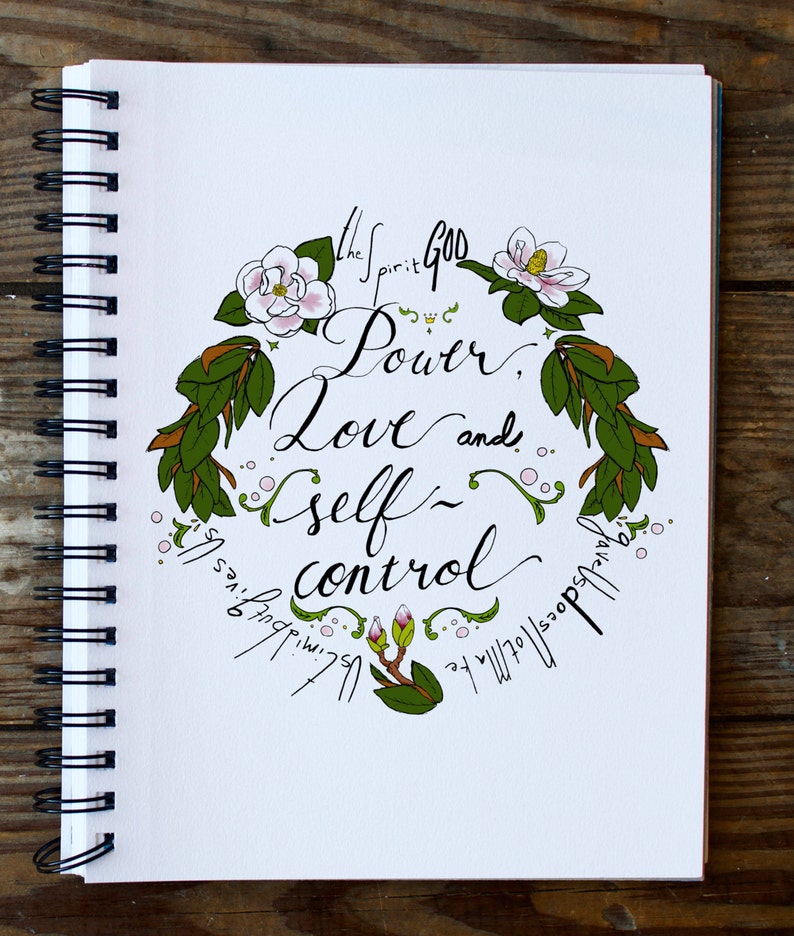 the Spirit GOD
gave Us does Not Make
Us timid but gives Us
Power,
Love and
self~
control